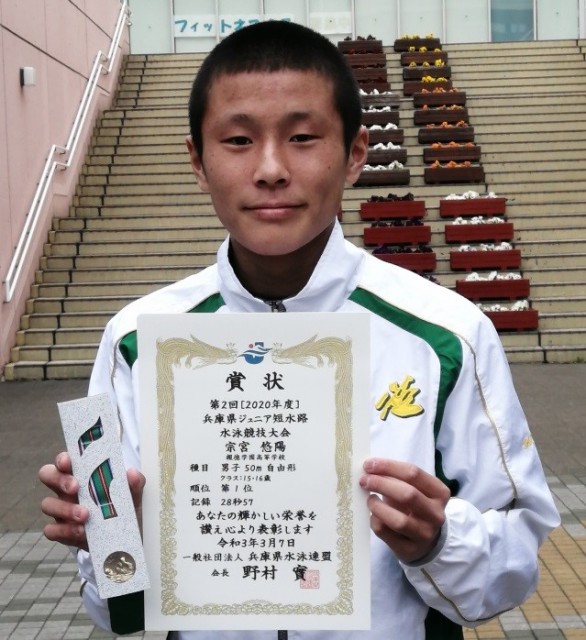 フィットネス
賞状
第2回[2020年度]
兵庫県ジュニア短水路
水泳競技大会
宗宮 悠陽
報徳学園高等学校
種目 男子 50m 自由形
クラス:15-16歳
順位 第1位
記録 28秒57
あなたの輝かしい栄誉を
讃え心より表彰します
令和3年3月7日
一般社団法人 兵庫県水泳連盟
会長 野村